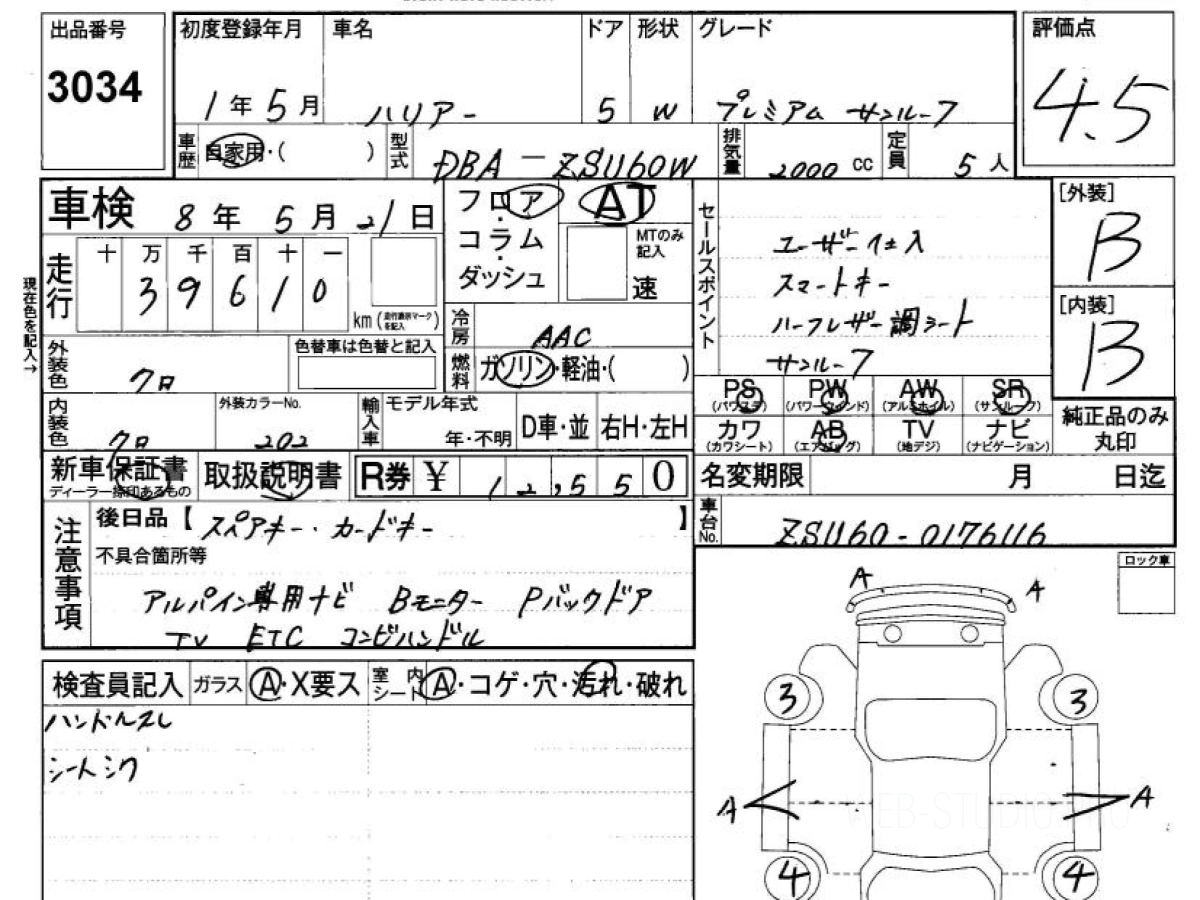 出品番号
3034
初度登録年月
1年5月
車名
ハリアー
ドア
5
形状
W
グレード
プレミアム サンルーフ
評価点
4.5
車歴
自家用・( )
型式
DBA-ZSU60W
排気量
2000 cc
定員
5人
車検
8年5月21日
フロア・コラム・ダッシュ
AT
MTのみ記入
速
セールスポイント
ユーザー仕入
スマートキー
ハーフレザー調シート
サンルーフ
[外装]
B
[内装]
B
現在色を記入→
走行
十 万 千 百 十 一
3 9 6 1 0
km (走行表示マークを記入)
冷房
AAC
燃料
ガソリン・軽油・( )
外装色
クロ
色替車は色替と記入
PS (パワステ)
PW (パワーウインド)
AW (アルミホイル)
SR (サンルーフ)
カワ (カワシート)
AB (エアバッグ)
TV (地デジ)
ナビ (ナビゲーション)
純正品のみ丸印
内装色
クロ
外装カラーNo.
202
輸入車
モデル年式
年・不明
D車・並
右H・左H
新車保証書
ディーラー捺印あるもの
取扱説明書
R券 ¥ 12,550
名変期限 月 日迄
車台No.
ZSU60-0176116
注意事項
後日品【スペアキー・カードキー】
不具合箇所等
アルパイン専用ナビ Bモニター Pバックドア
TV ETC コンビハンドル
ロック車
A
A
検査員記入
ガラス
A・X要ス
室内シート
A・コゲ・穴・汚れ・破れ
ハンドルスレ
シートシワ
3
3
A
A
WEB-STUDIO PRO
4
4